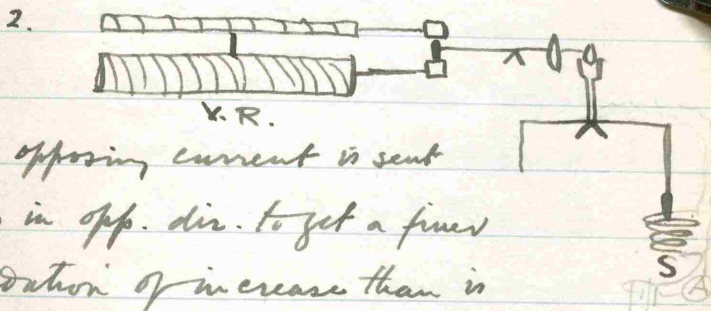 2.
V. R.
opposing current is sent
in opp. dir. to get a finer
dation of increase than is
S
A